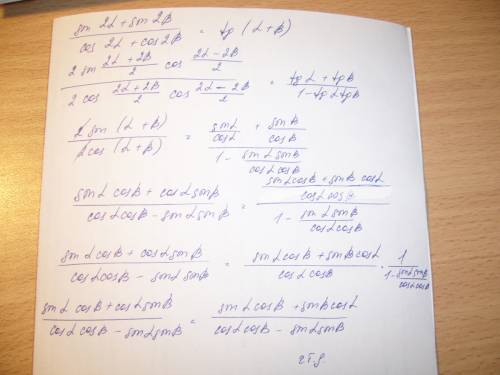 (sin 2α + sin 2β) / (cos 2α + cos 2β) = tg (α + β)
(2 sin (2α + 2β)/2 cos (2α − 2β)/2) / (2 cos (2α + 2β)/2 cos (2α − 2β)/2) = (tg α + tg β) / (1 − tg α tg β)
(2 sin (α + β)) / (2 cos (α + β)) = (sin α / cos α + sin β / cos β) / (1 − (sin α sin β) / (cos α cos β))
(sin α cos β + cos α sin β) / (cos α cos β − sin α sin β) = ((sin α cos β + sin β cos α) / (cos α cos β)) / (1 − (sin α sin β) / (cos α cos β))
(sin α cos β + cos α sin β) / (cos α cos β − sin α sin β) = (sin α cos β + sin β cos α) / (cos α cos β) · 1 / (1 − (sin α sin β) / (cos α cos β))
(sin α cos β + cos α sin β) / (cos α cos β − sin α sin β) = (sin α cos β + sin β cos α) / (cos α cos β − sin α sin β)
чт.д.